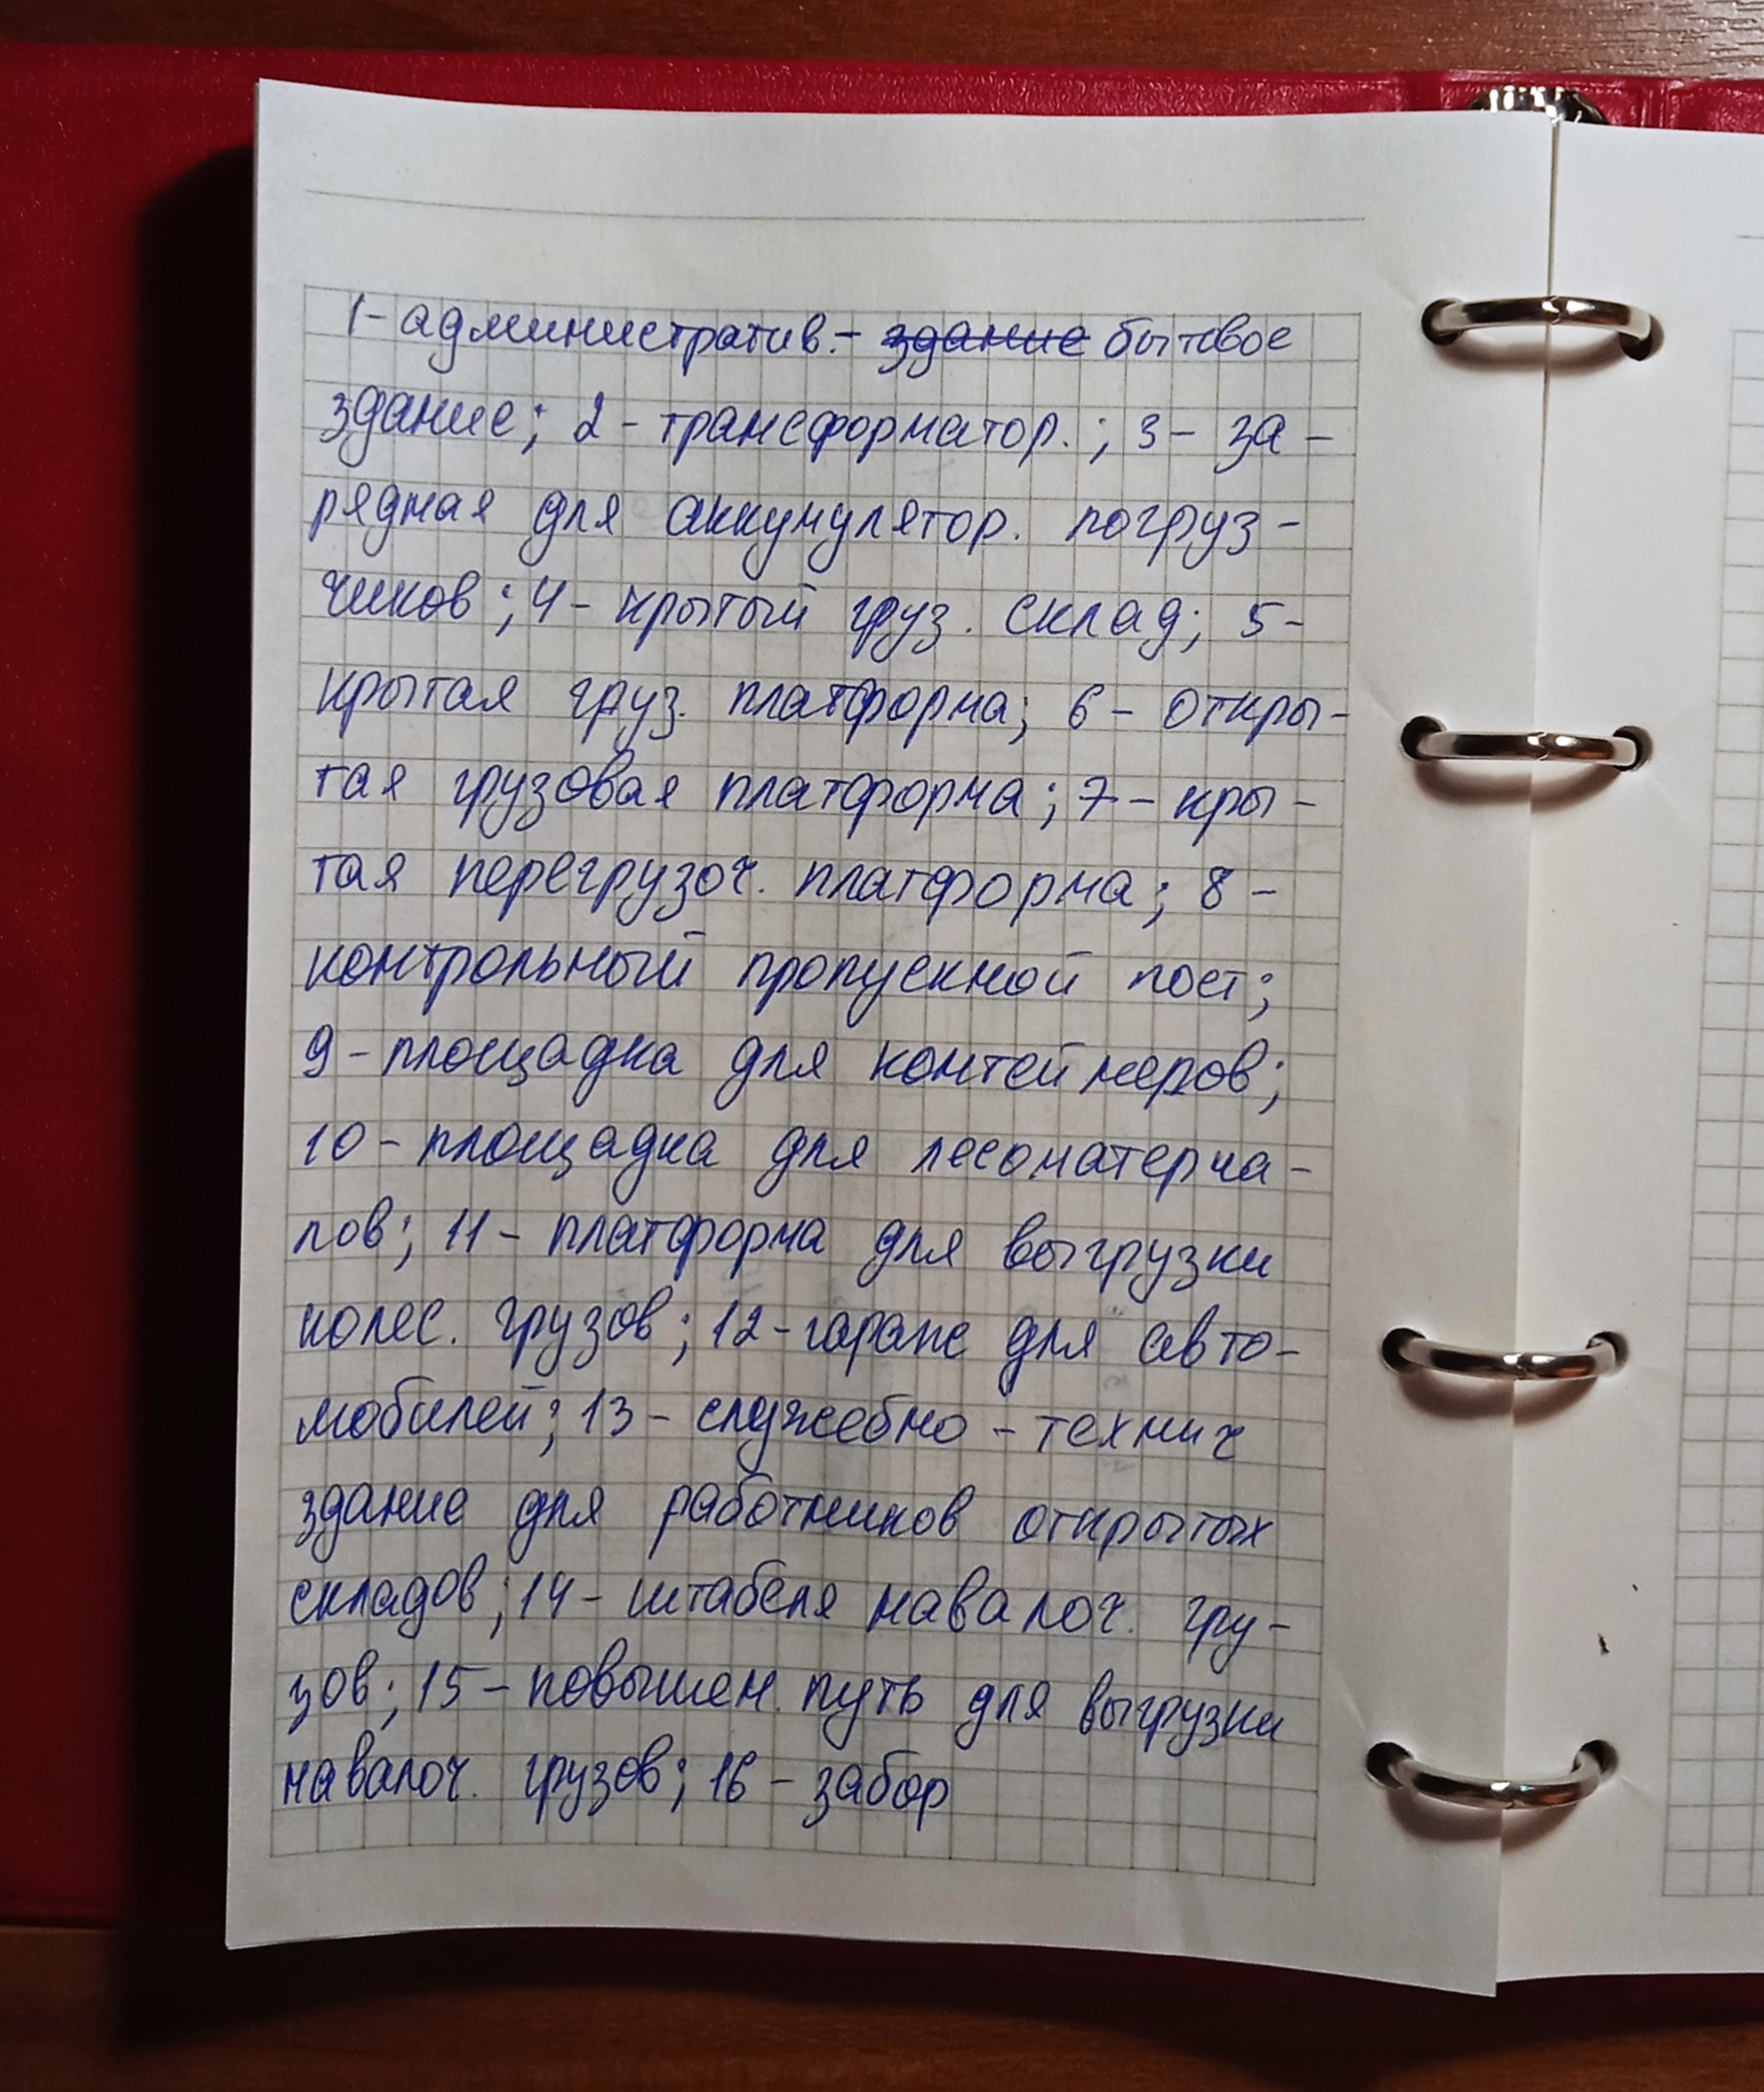 1- административ.- ~~здание~~ бытовое
здание; 2 - трансформатор.; 3 - за -
рядная для аккумулятор. погруз -
чиков; 4 - крытый груз. склад; 5 -
крытая груз. платформа; 6 - откры -
тая грузовая платформа; 7 - кры -
тая перегрузоч. платформа; 8 -
контрольный пропускной пост;
9 - площадка для контейнеров;
10 - площадка для лесоматериа -
лов; 11 - платформа для выгрузки
колес. грузов; 12 - гараж для авто -
мобилей; 13 - служебно - технич
здание для работников открытых
складов; 14 - штабеля навалоч. гру -
зов; 15 - повышен. путь для выгрузки
навалоч. грузов; 16 - забор